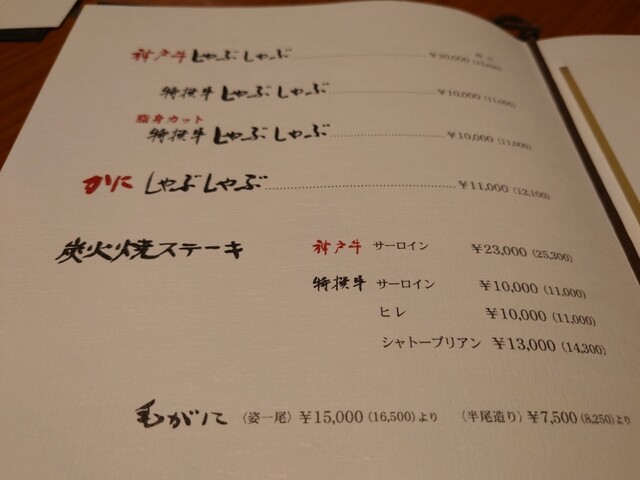 神戸牛 しゃぶしゃぶ ¥20,000 (22,000)
特撰牛 しゃぶしゃぶ ¥10,000 (11,000)
脂身カット
特撰牛 しゃぶしゃぶ ¥10,000 (11,000)
かに しゃぶしゃぶ ¥11,000 (12,100)
炭火焼ステーキ 神戸牛 サーロイン ¥23,000 (25,300)
特撰牛 サーロイン ¥10,000 (11,000)
ヒレ ¥10,000 (11,000)
シャトーブリアン ¥13,000 (14,300)
毛がに 〈姿一尾〉 ¥15,000 (16,500) より 〈半尾造り〉 ¥7,500 (8,250) より